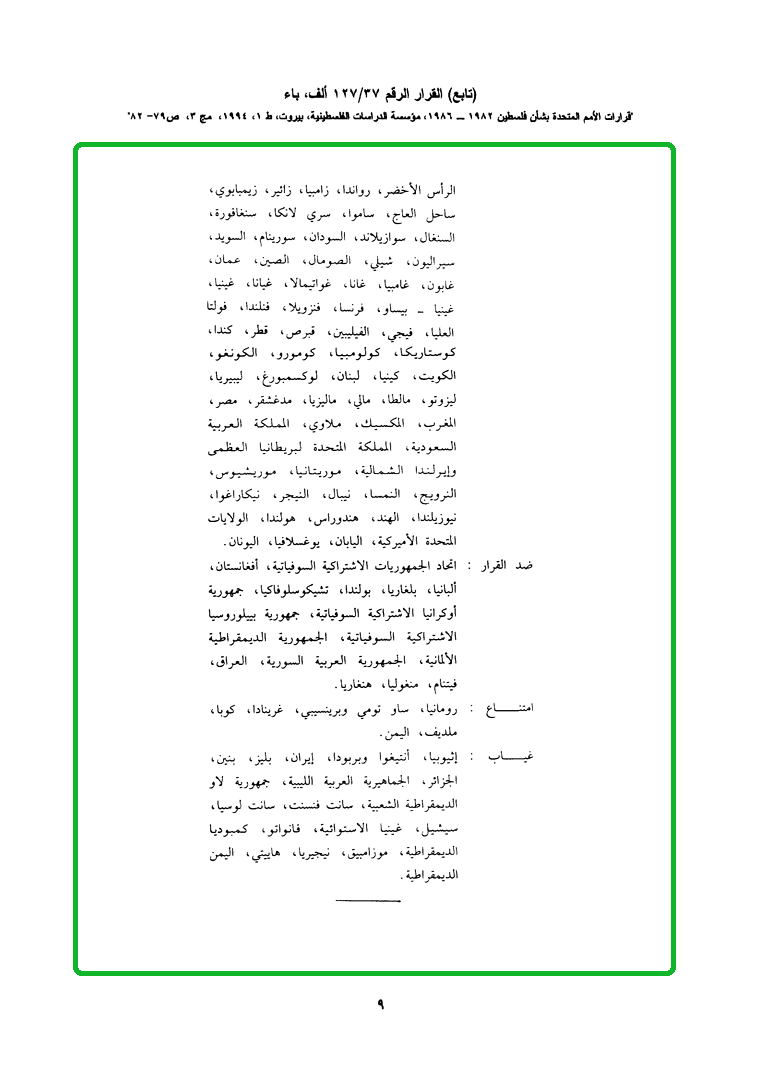 (تابع) القرار الرقم ١٢٧/٣٧ ألف، باء
"قرارات الأمم المتحدة بشأن فلسطين ١٩٨٢ ــ ١٩٨٦، مؤسسة الدراسات الفلسطينية، بيروت، ط ١، ١٩٩٤، مج ٣، ص٧٩- ٨٢"
الرأس الأخضر، رواندا، زامبيا، زائير، زيمبابوي،
ساحل العاج، ساموا، سري لانكا، سنغافورة،
السنغال، سوازيلاند، السودان، سورينام، السويد،
سيراليون، شيلي، الصومال، الصين، عمان،
غابون، غامبيا، غانا، غواتيمالا، غيانا، غينيا،
غينيا ــ بيساو، فرنسا، فنزويلا، فنلندا، فولتا
العليا، فيجي، الفيليبين، قبرص، قطر، كندا،
كوستاريكا، كولومبيا، كومورو، الكونغو،
الكويت، كينيا، لبنان، لوكسمبورغ، ليبيريا،
ليزوتو، مالطا، مالي، ماليزيا، مدغشقر، مصر،
المغرب، المكسيك، ملاوي، المملكة العربية
السعودية، المملكة المتحدة لبريطانيا العظمى
وإيرلندا الشمالية، موريتانيا، موريشيوس،
النرويج، النمسا، نيبال، النيجر، نيكاراغوا،
نيوزيلندا، الهند، هندوراس، هولندا، الولايات
المتحدة الأميركية، اليابان، يوغسلافيا، اليونان.
ضد القرار : اتحاد الجمهوريات الاشتراكية السوفياتية، أفغانستان،
ألبانيا، بلغاريا، بولندا، تشيكوسلوفاكيا، جمهورية
أوكرانيا الاشتراكية السوفياتية، جمهورية بييلوروسيا
الاشتراكية السوفياتية، الجمهورية الديمقراطية
الألمانية، الجمهورية العربية السورية، العراق،
فيتنام، منغوليا، هنغاريا.
امتنـــــاع : رومانيا، ساو تومي وبرينسيبي، غرينادا، كوبا،
ملديف، اليمن.
غيـــــاب : إثيوبيا، أنتيغوا وبربودا، إيران، بليز، بنين،
الجزائر، الجماهيرية العربية الليبية، جمهورية لاو
الديمقراطية الشعبية، سانت فنسنت، سانت لوسيا،
سيشيل، غينيا الاستوائية، فانواتو، كمبوديا
الديمقراطية، موزامبيق، نيجيريا، هاييتي، اليمن
الديمقراطية.
٩